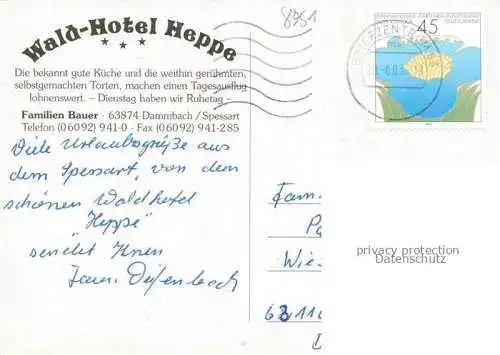 Wald-Hotel Heppe
Die bekannt gute Küche und die weithin gerühmten,
selbstgemachten Torten, machen einen Tagesausflug
lohnenswert. – Dienstag haben wir Ruhetag –
Familien Bauer · 63874 Dammbach / Spessart
Telefon (0 60 92) 941-0 · Fax (0 60 92) 941-285
Viele Urlaubsgrüße aus
dem Spessart, von dem
schönen Waldhotel
„Heppe"
sendet Ihnen
Fam.
8751
45
DEUTSCHLAND
BRIEFZENTRUM
Fam.
Wie
privacy protection
Datenschutz